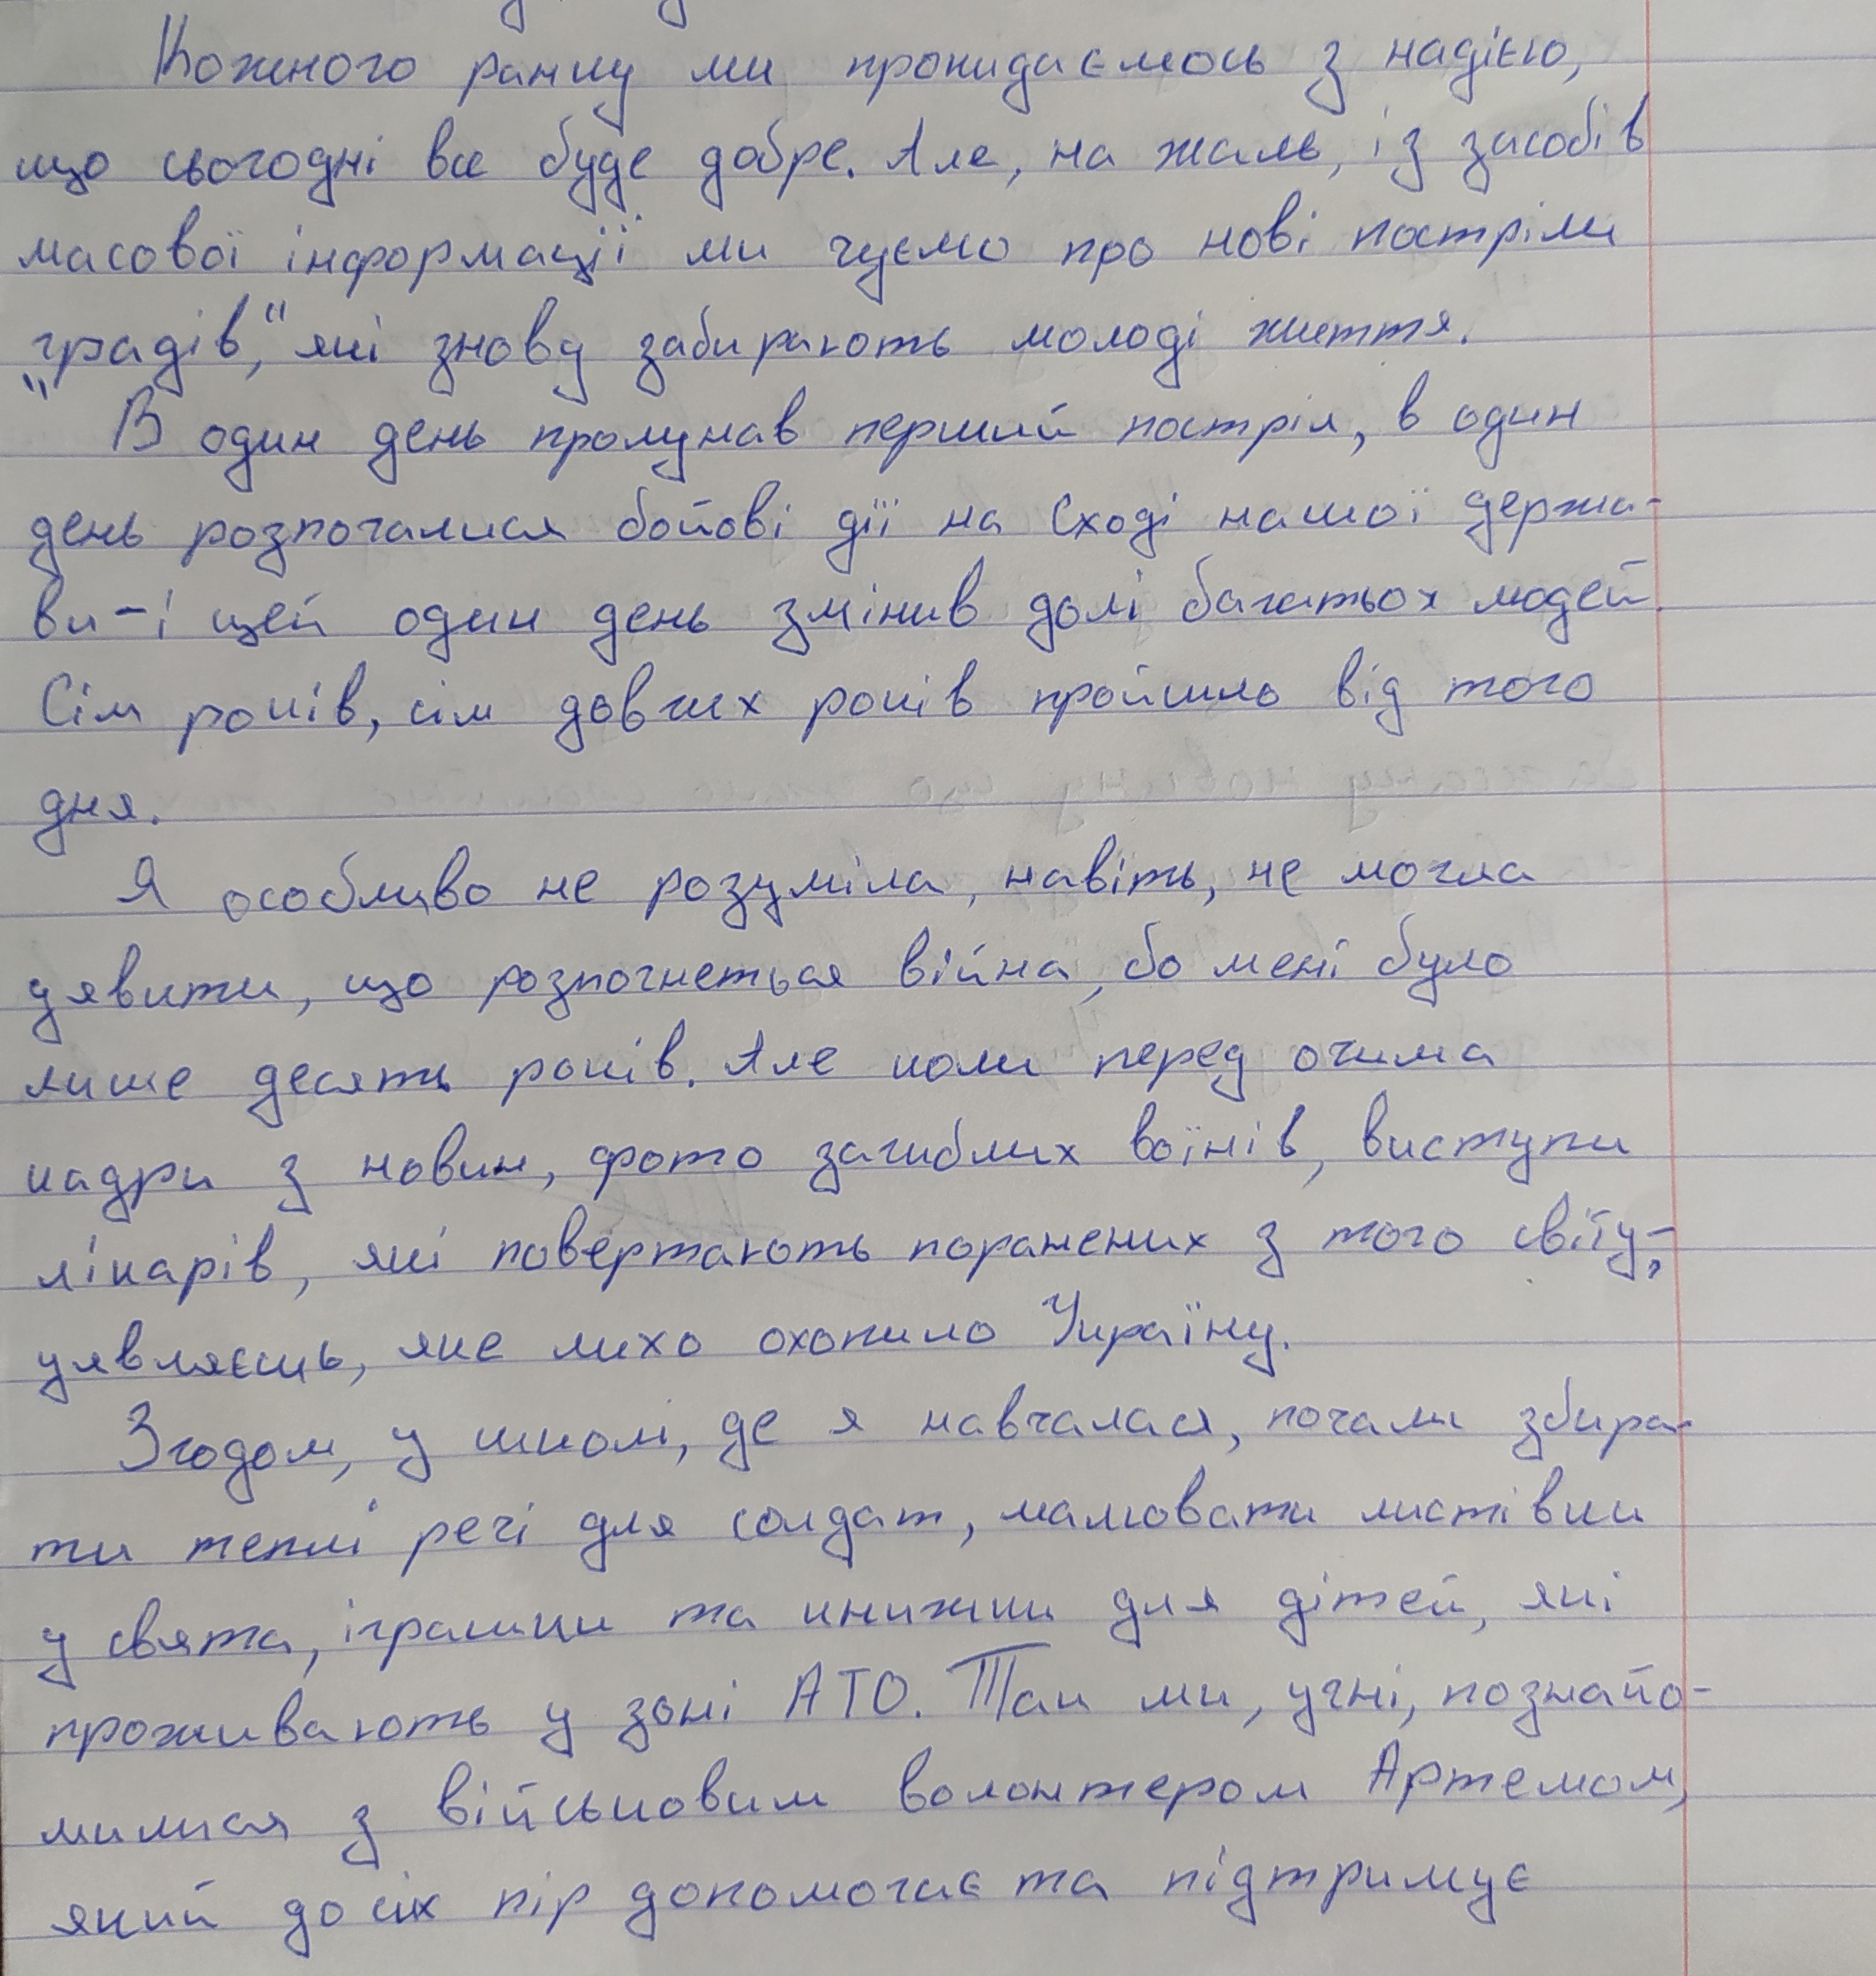 Кожного ранку ми прокидаємось з надією,
що сьогодні все буде добре. Але, на жаль, із засобів
масової інформації ми чуємо про нові постріли
"градів," які знову забирають молоді життя.
В один день пролунав перший постріл, в один
день розпочалися бойові дії на Сході нашої держа-
ви - і цей один день змінив долі багатьох людей.
Сім років, сім довгих років пройшло від того
дня.
Я особливо не розуміла, навіть, не могла
уявити, що розпочнеться війна, бо мені було
лише десять років. Але коли перед очима
кадри з новин, фото загиблих воїнів, виступи
лікарів, які повертають поранених з того світу, -
уявляєшь, яке лихо охопило Україну.
Згодом, у школі, де я навчалася, почали збира-
ти теплі речі для солдат, малювати листівки
у свята, іграшки та книжки для дітей, які
проживають у зоні АТО. Так ми, учні, познайо-
милися з військовим волонтером Артемом,
який до сіх пір допомогає та підтримує